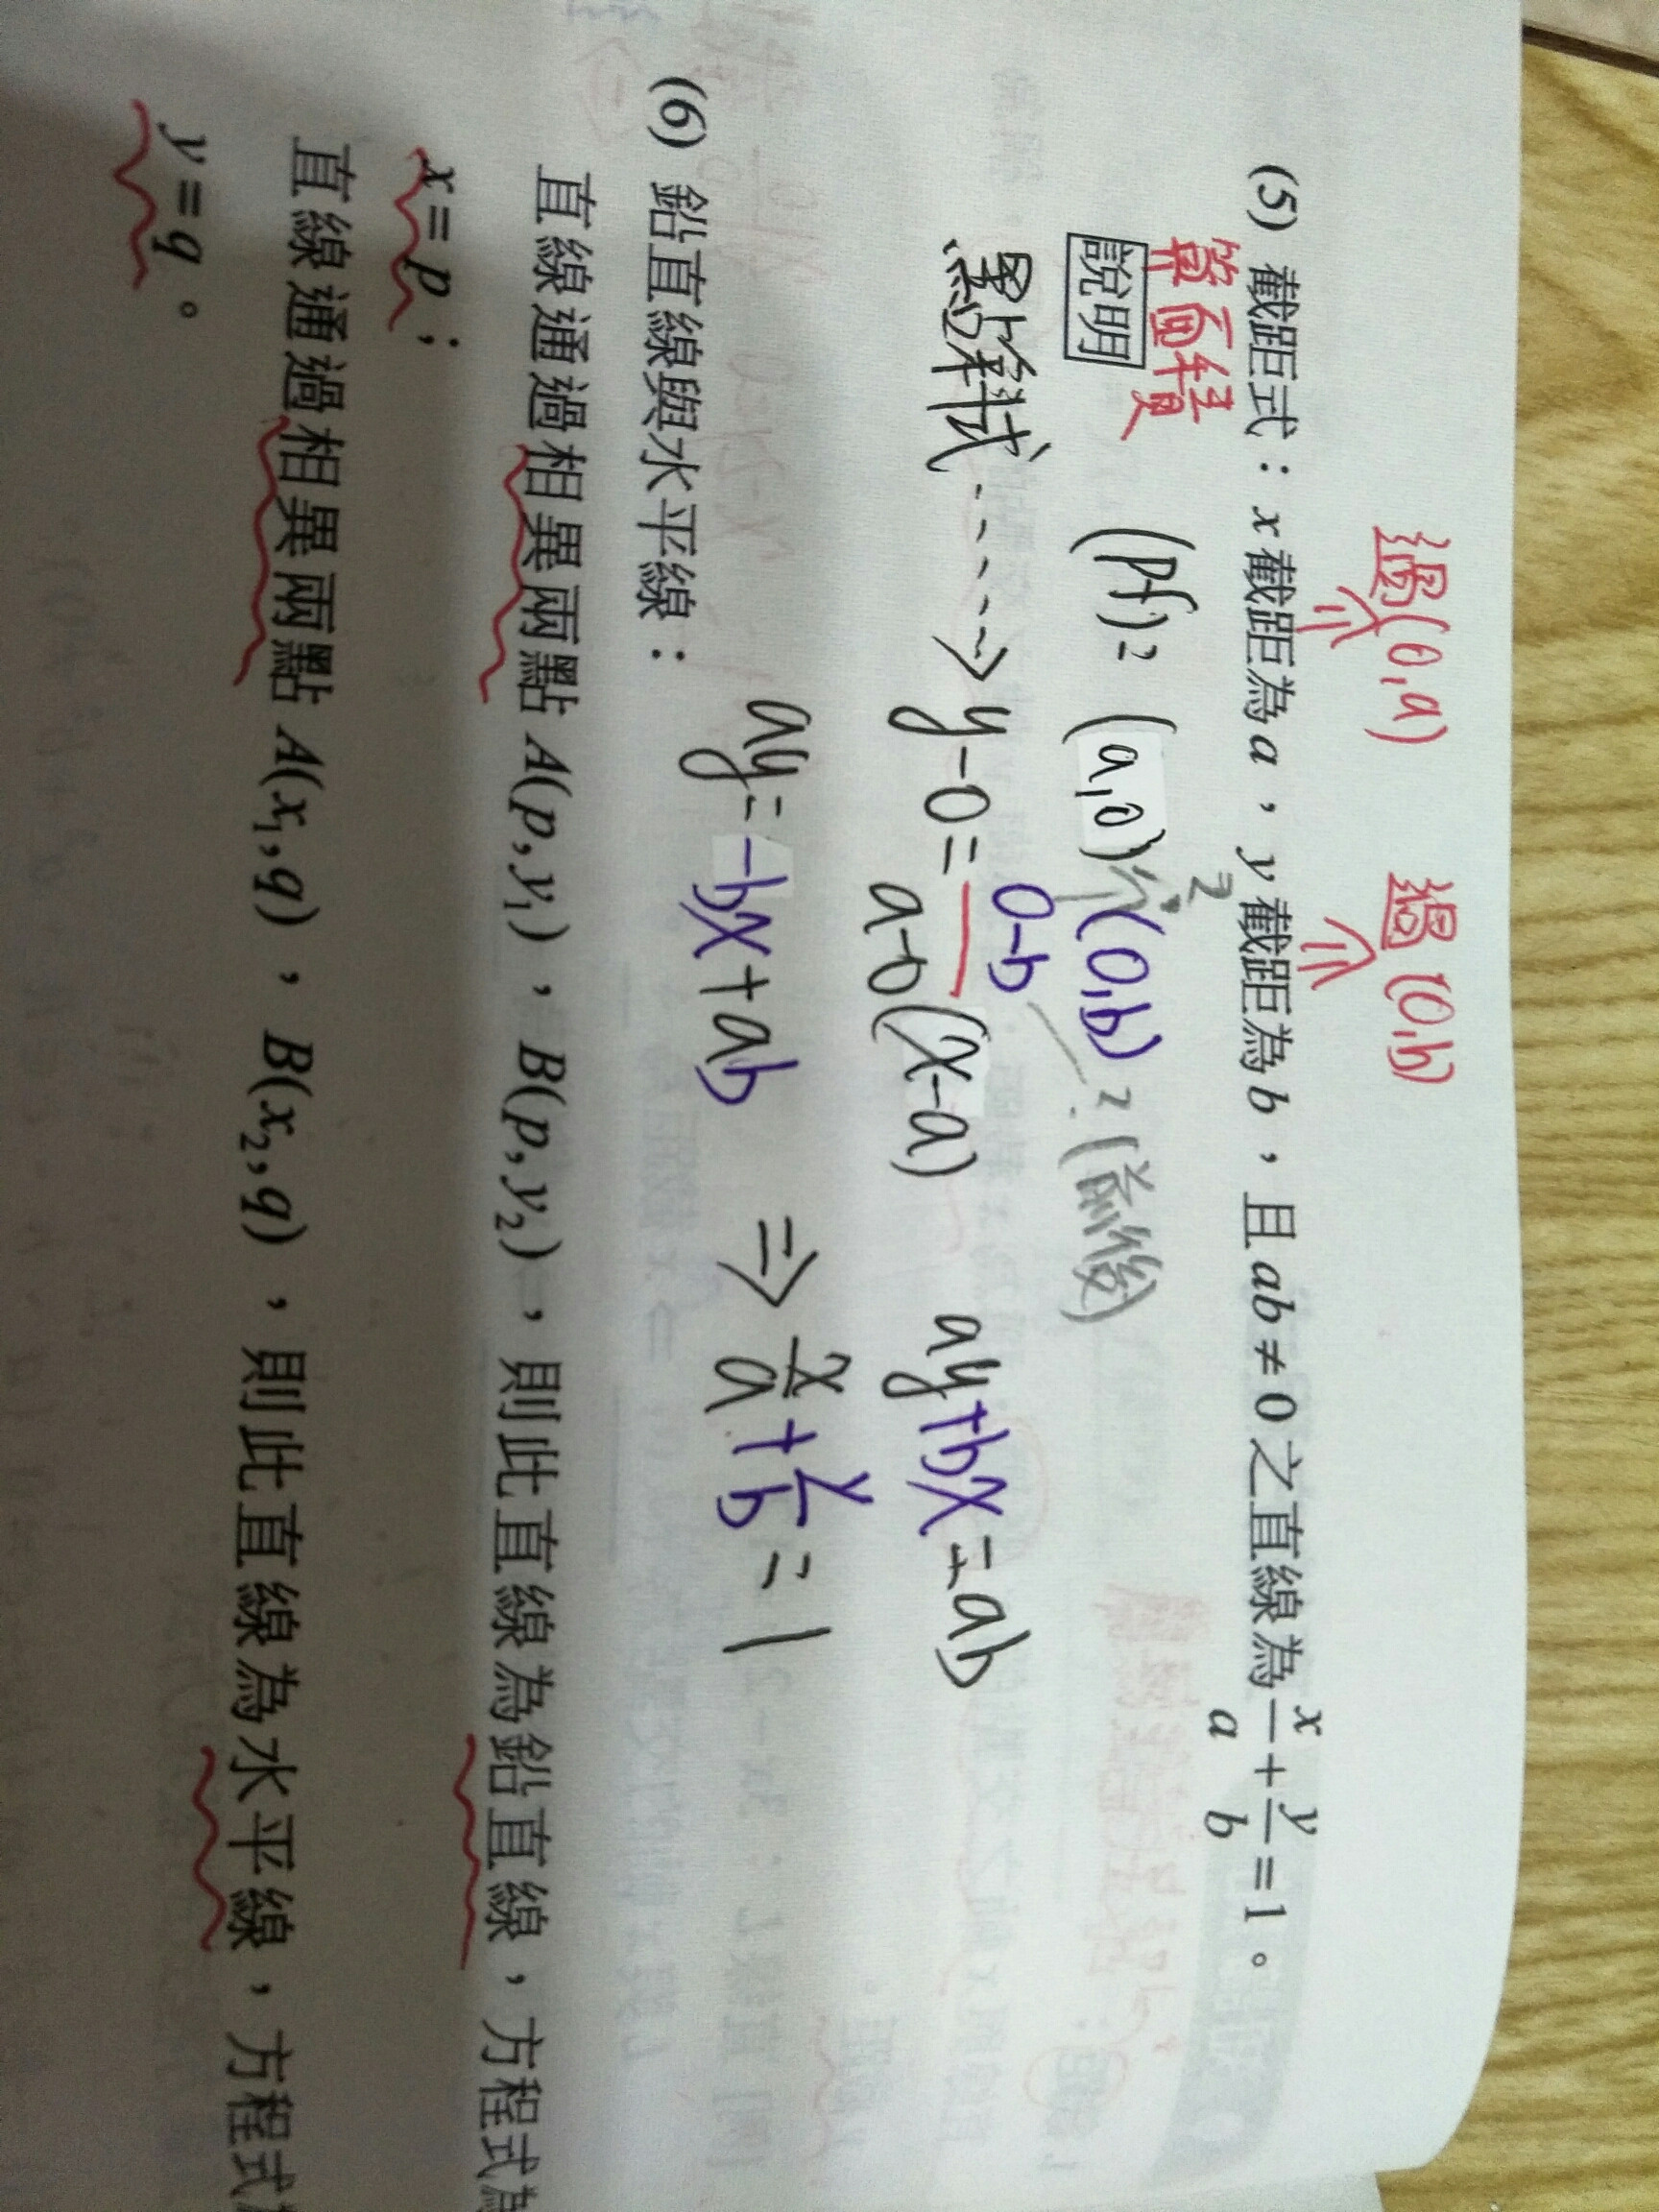 過(0,a) 過(0,b)
(5) 截距式：x 截距為 a，y 截距為 b，且 ab ≠ 0 之直線為 x/a + y/b = 1。
算面積
說明 (pf): (a,0) (0,b) (前後)
點斜式 ----> y-0 = 0-b/a-0 (x-a) ay+bx=ab
ay=-bx+ab ⇒ x/a + y/b = 1
(6) 鉛直線與水平線：
直線通過相異兩點 A(p,y₁)，B(p,y₂)，則此直線為鉛直線，方程式為
x = p；
直線通過相異兩點 A(x₁,q)，B(x₂,q)，則此直線為水平線，方程式為
y = q。